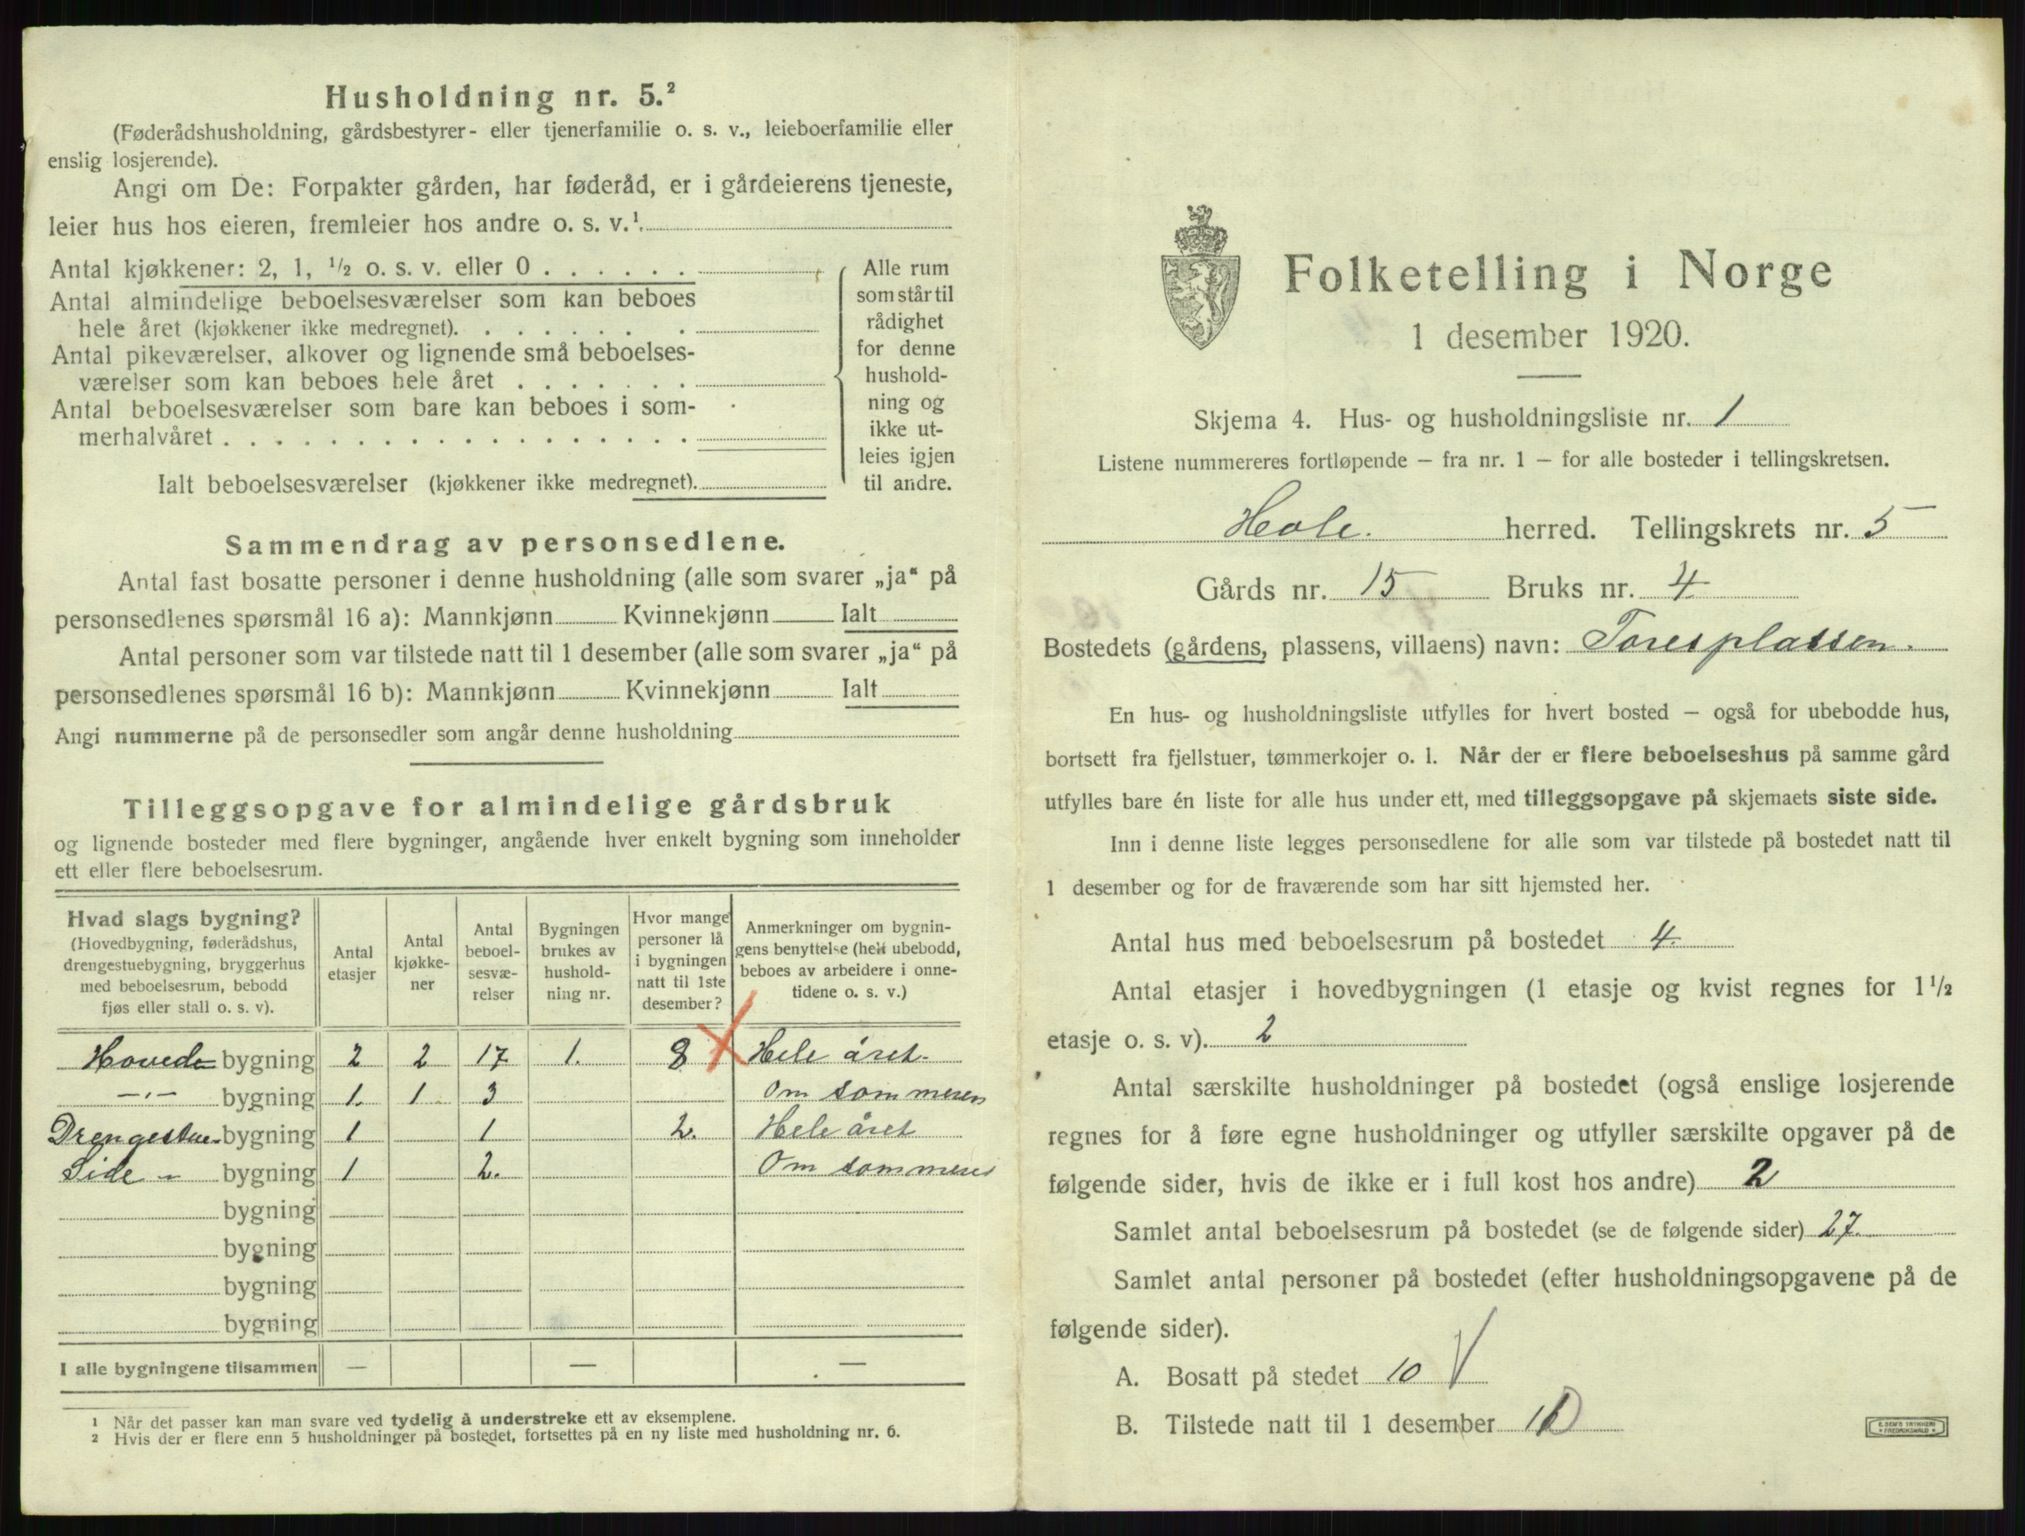 Husholdning nr. 5.²
(Føderådshusholdning, gårdsbestyrer- eller tjenerfamilie o. s. v., leieboerfamilie eller
enslig losjerende).
Angi om De: Forpakter gården, har føderåd, er i gårdeierens tjeneste,
leier hus hos eieren, fremleier hos andre o. s. v.¹.
Antal kjøkkener: 2, 1, ½ o. s. v. eller 0 . . . . . .
Antal almindelige beboelsesværelser som kan beboes
hele året (kjøkkener ikke medregnet). . . . . . . .
Antal pikeværelser, alkover og lignende små beboelses-
værelser som kan beboes hele året . . . . . . .
Antal beboelsesværelser som bare kan beboes i som-
merhalvåret . . . . . . . . . . . . . . . . . .
Ialt beboelsesværelser (kjøkkener ikke medregnet).
Alle rum
som står til
rådighet
for denne
hushold-
ning og
ikke ut-
leies igjen
til andre.
Sammendrag av personsedlene.
Antal fast bosatte personer i denne husholdning (alle som svarer „ja“ på
personsedlenes spørsmål 16 a): Mannkjønn Kvinnekjønn Ialt
Antal personer som var tilstede natt til 1 desember (alle som svarer „ja“ på
personsedlenes spørsmål 16 b): Mannkjønn Kvinnekjønn Ialt
Angi nummerne på de personsedler som angår denne husholdning
Tilleggsopgave for almindelige gårdsbruk
og lignende bosteder med flere bygninger, angående hver enkelt bygning som inneholder
ett eller flere beboelsesrum.
Hvad slags bygning?
(Hovedbygning, føderådshus,
drengestuebygning, bryggerhus
med beboelsesrum, bebodd
fjøs eller stall o. s. v).
Antal
etasjer
Antal
kjøkke-
ner
Antal
beboel-
sesvæ-
relser
Bygningen
brukes av
hushold-
ning nr.
Hvor mange
personer lå
i bygningen
natt til 1ste
desember?
Anmerkninger om bygnin-
gens benyttelse (helt ubebodd,
beboes av arbeidere i onne-
tidene o. s. v.)
Hovede bygning 2 2 17 1. 8 Hele året.
-"- bygning 1. 1 3 Om sommeren
Drengestue bygning 1 1 2. Hele året
Side - bygning 1 2. Om sommeren
bygning
bygning
bygning
bygning
I alle bygningene tilsammen — — —
¹ Når det passer kan man svare ved tydelig å understreke ett av eksemplene.
² Hvis der er flere enn 5 husholdninger på bostedet, fortsettes på en ny liste med husholdning nr. 6.
Folketelling i Norge
1 desember 1920.
Skjema 4. Hus- og husholdningsliste nr. 1
Listene nummereres fortløpende – fra nr. 1 – for alle bosteder i tellingskretsen.
Hole. herred. Tellingskrets nr. 5
Gårds nr. 15 Bruks nr. 4
Bostedets (gårdens, plassens, villaens) navn: Toresplassen.
En hus- og husholdningsliste utfylles for hvert bosted – også for ubebodde hus,
bortsett fra fjellstuer, tømmerkojer o. l. Når der er flere beboelseshus på samme gård
utfylles bare én liste for alle hus under ett, med tilleggsopgave på skjemaets siste side.
Inn i denne liste legges personsedlene for alle som var tilstede på bostedet natt til
1 desember og for de fraværende som har sitt hjemsted her.
Antal hus med beboelsesrum på bostedet 4.
Antal etasjer i hovedbygningen (1 etasje og kvist regnes for 1½
etasje o. s. v). 2
Antal særskilte husholdninger på bostedet (også enslige losjerende
regnes for å føre egne husholdninger og utfyller særskilte opgaver på de
følgende sider, hvis de ikke er i full kost hos andre) 2
Samlet antal beboelsesrum på bostedet (se de følgende sider) 27.
Samlet antal personer på bostedet (efter husholdningsopgavene på de
følgende sider).
A. Bosatt på stedet 10
B. Tilstede natt til 1 desember 10